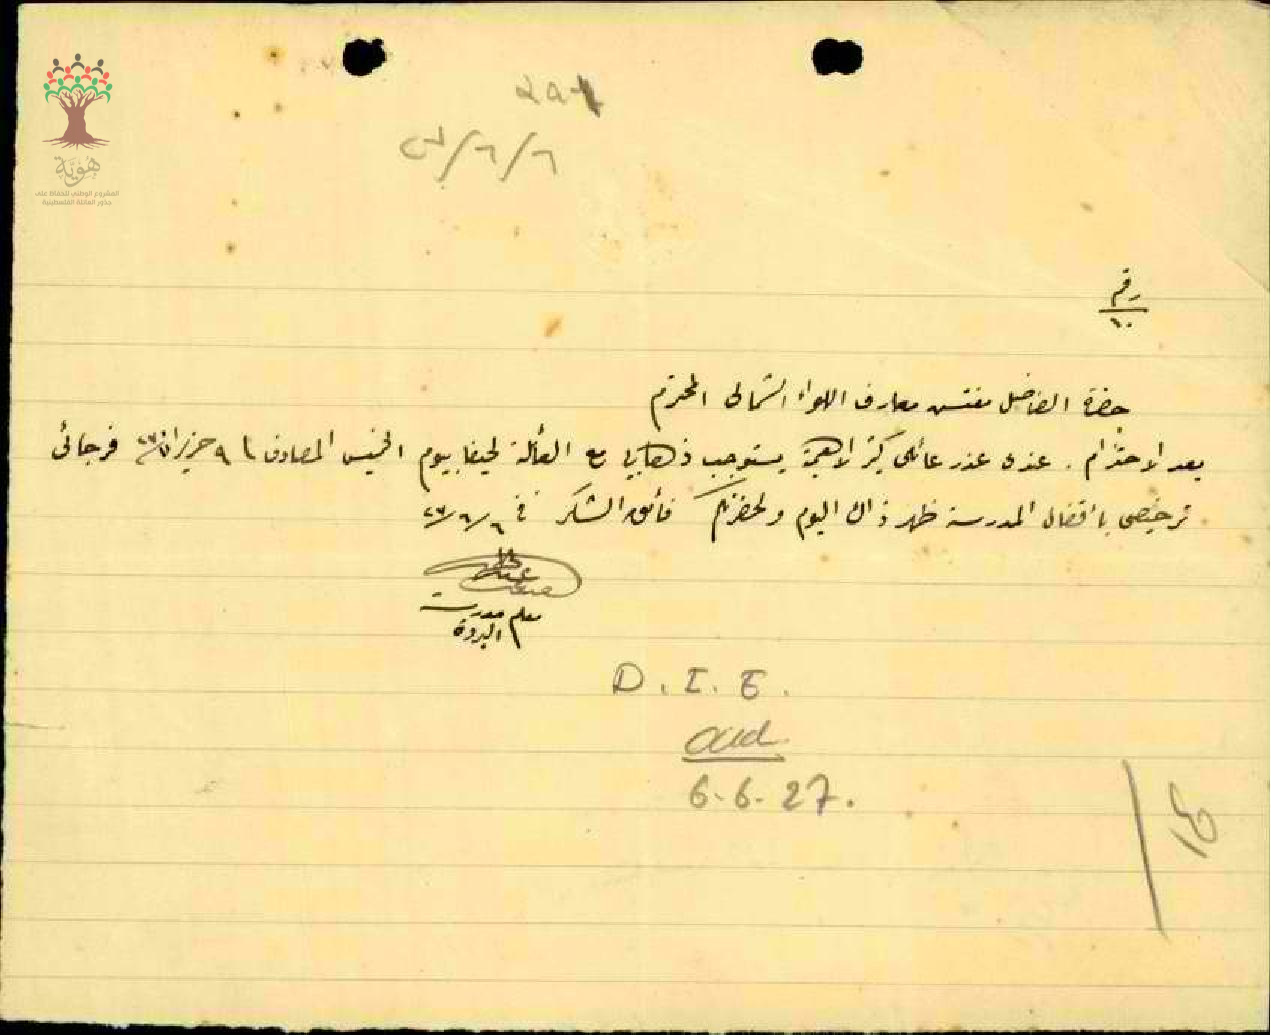 هوية
المشروع الوطني للحفاظ على
جذور العائلة الفلسطينية
٦/٦/
رقم
٦٠
حضرة الفاضل مفتش معارف اللواء الشمالي المحترم
بعد الاحترام . عندي عذر عائلي كثير الاهمية يستوجب ذهابي مع العائلة لحيفا بيوم الخميس المصادف ٩ حزيران ٢٧ فرجائي
ترخيصي باقفال المدرسة ظهر ذاك اليوم ولحضرتكم فائق الشكر في ٦/٦/٢٧
معلم مدرسة
البروة
D. I. E.
6.6.27.